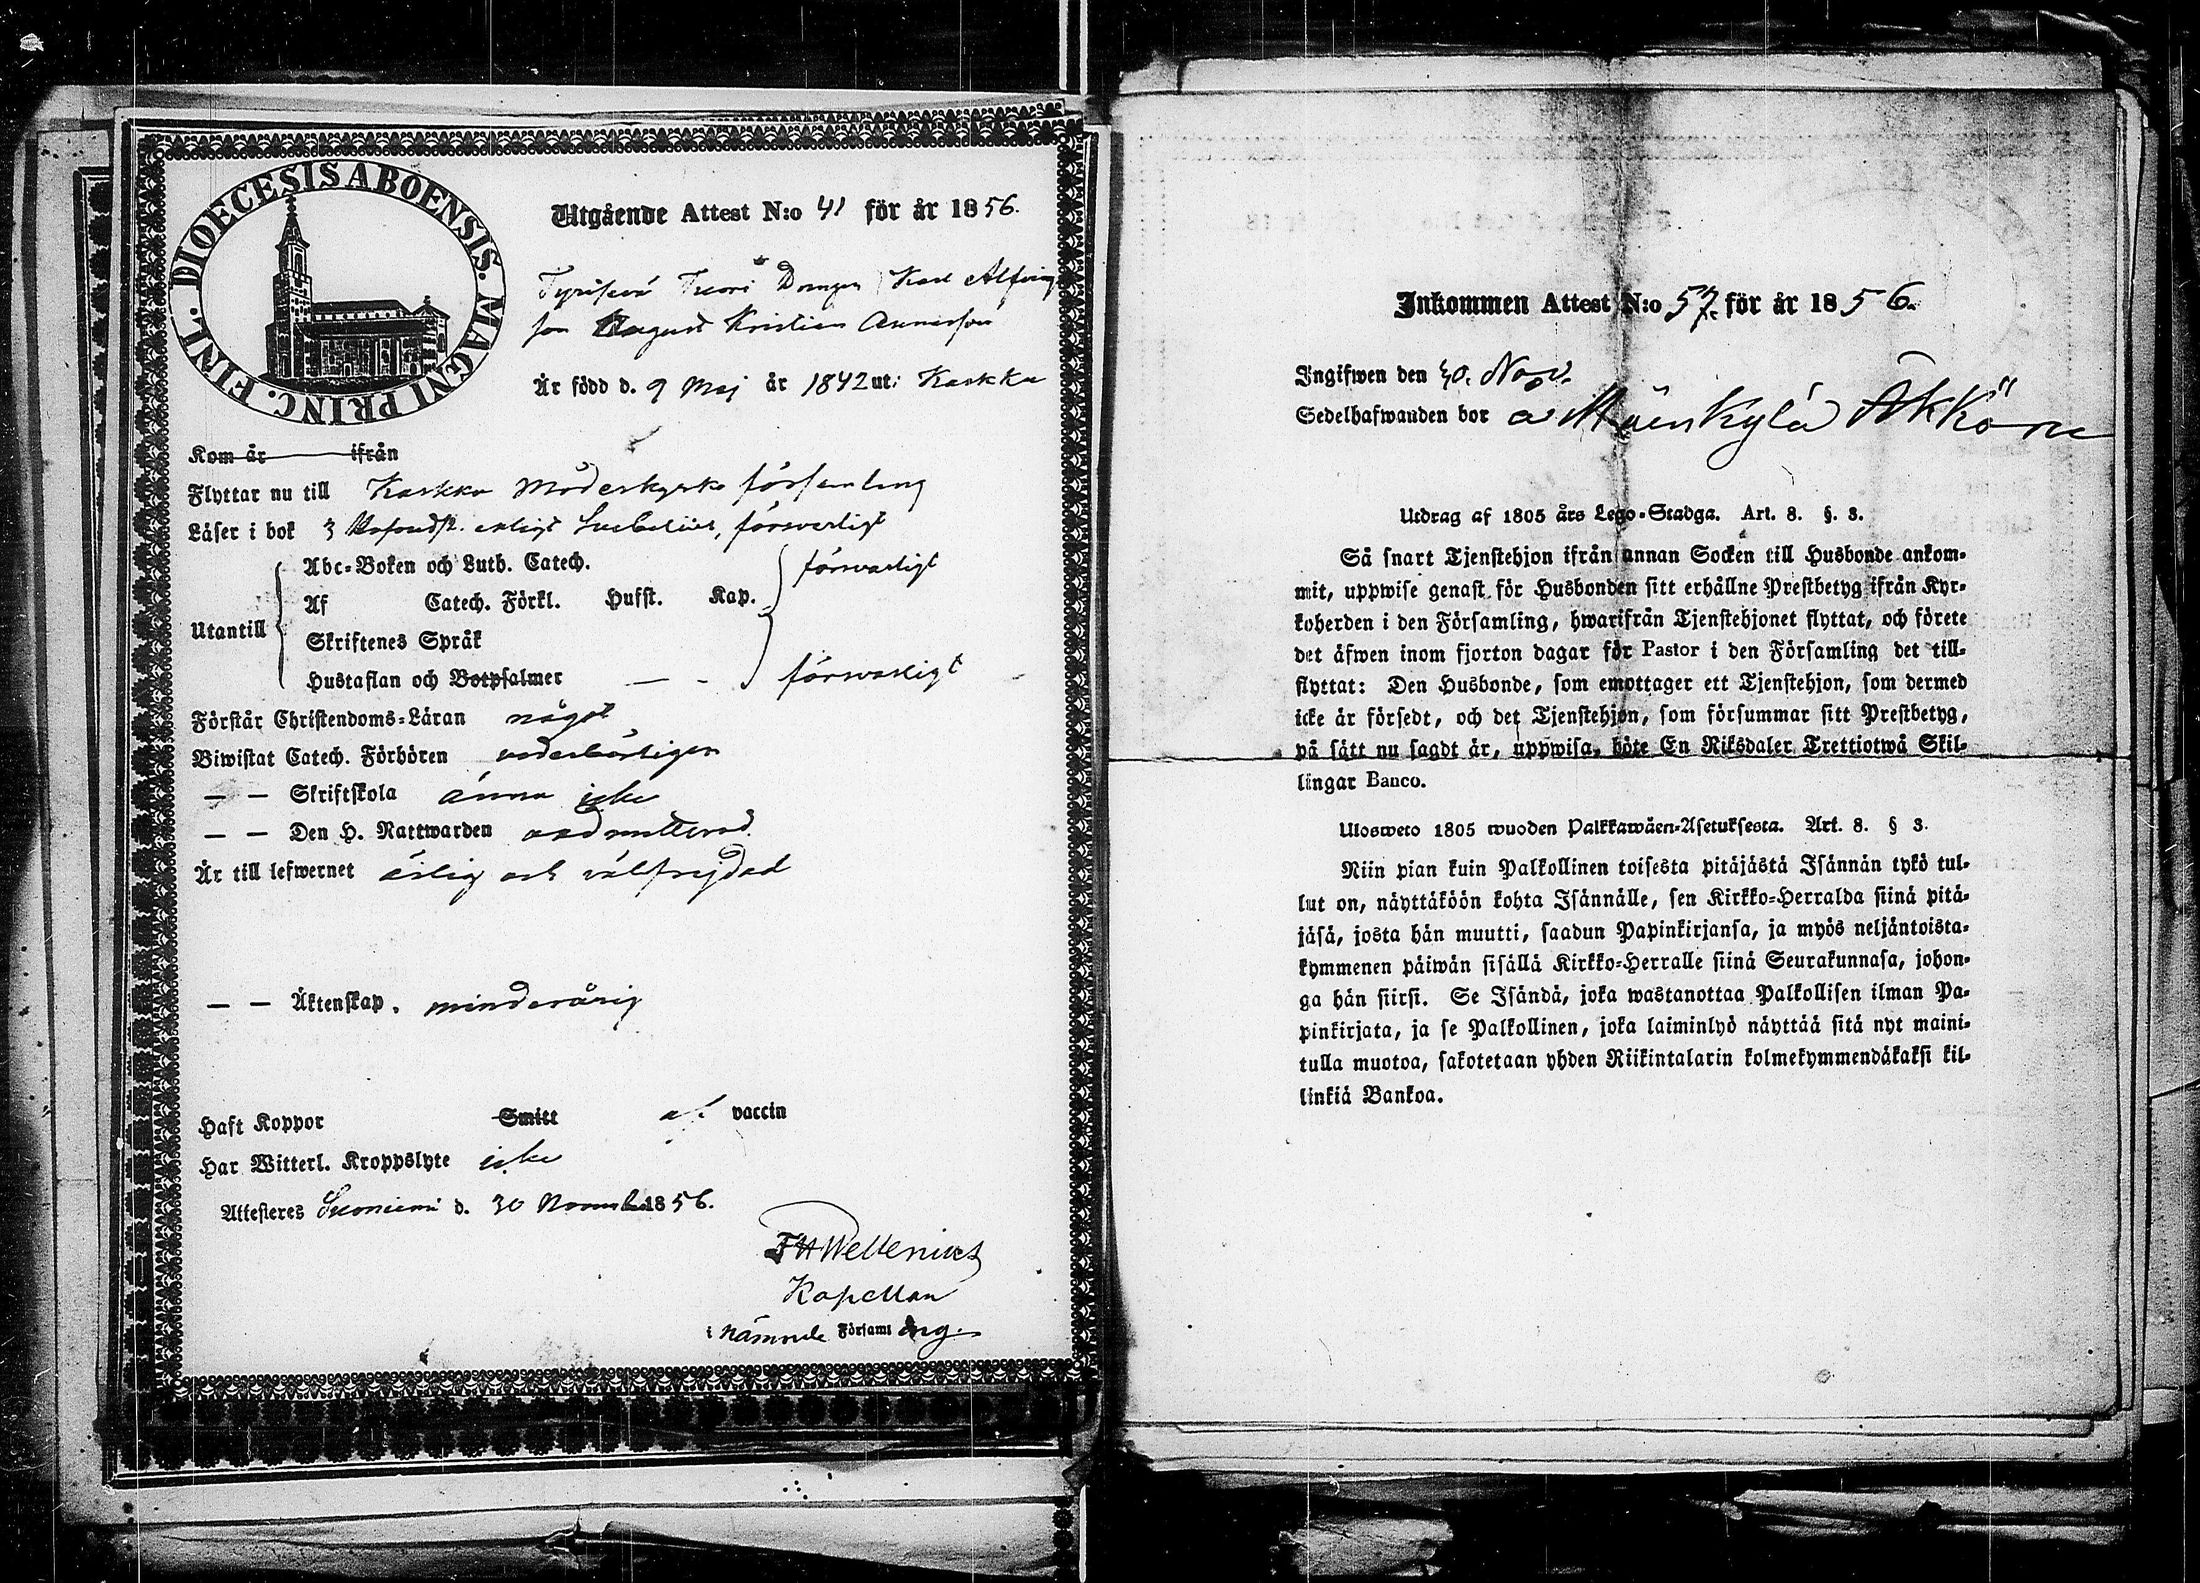 DIOECESIS ABOENSIS. MAGNI PRINC. FINL.
Utgående Attest N:o 41 för år 1856.
Karl Alfving
son August Kristian
Är född d. 9 Maj år 1842 ut: Karkku
Kom år ifrån
Flyttar nu till Karkku Moderkyrko församling
Läser i bok försvarligt
Abc-Boken och Luth. Catech. försvarligt
Af Catech. Förkl. Husst. Kap.
Utantill
Skriftenes Språk
Hustaflan och Botpsalmer — - försvarligt
Förstår Christendoms-Läran något
Biwistat Catech. Förhören vederbörligen
— — Skriftskola ännu icke
— — Den H. Nattwarden oadmitterad.
Är till lefwernet ärlig och välfrejdad
— — Äktenskap. minderårig
Haft Koppor Smitt af vaccin
Har Witterl. Kroppslyte icke
Attesteres Suoniemi d. 30 1856.
Kapellan
i nämnde Församling.
Inkommen Attest N:o 57. för år 1856.
Ingifwen den 30. Nov.
Sedelhafwanden bor å
Utdrag af 1805 års Lego-Stadga. Art. 8. §. 3.
Så snart Tjenstehjon ifrån annan Socken till Husbonde ankom-
mit, uppwise genast för Husbonden sitt erhållne Prestbetyg ifrån Kyr-
koherden i den Församling, hwarifrån Tjenstehjonet flyttat, och förete
det äfwen inom fjorton dagar för Pastor i den Församling det till-
flyttat: Den Husbonde, som emottager ett Tjenstehjon, som dermed
icke är försedt, och det Tjenstehjon, som försummar sitt Prestbetyg,
på sätt nu sagdt är, uppwisa, böte En Riksdaler Trettiotwå Skil-
lingar Banco.
Ulosweto 1805 wuoden Palkkawäen-Asetuksesta. Art. 8. § 3.
Niin pian kuin Palkollinen toisesta pitäjästä Isännän tykö tul-
lut on, näyttäköön kohta Isännälle, sen Kirkko-Herralda siinä pitä-
jäsä, josta hän muutti, saadun Papinkirjansa, ja myös neljäntoista-
kymmenen päiwän sisällä Kirkko-Herralle siinä Seurakunnasa, johon-
ga hän siirsi. Se Isändä, joka wastanottaa Palkollisen ilman Pa-
pinkirjata, ja se Palkollinen, joka laiminlyö näyttää sitä nyt maini-
tulla muotoa, sakotetaan yhden Riikintalarin kolmekymmendäkaksi kil-
linkiä Bankoa.